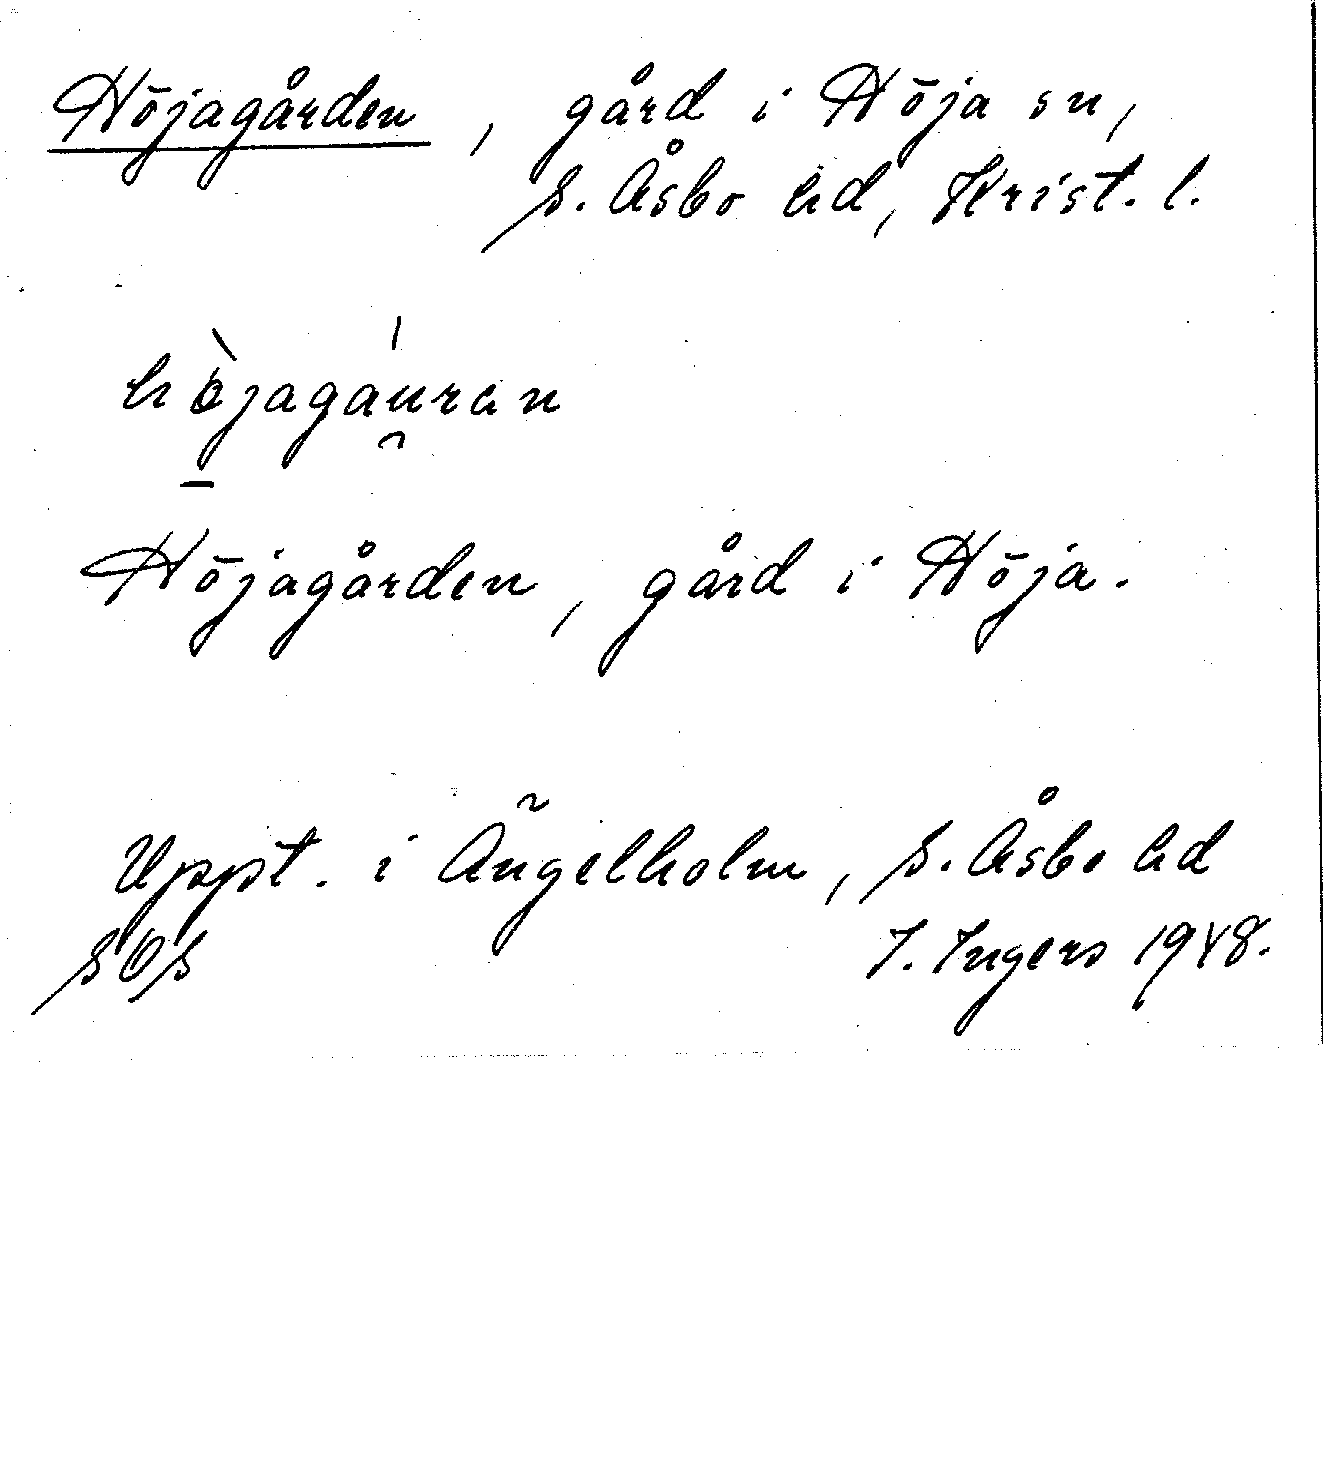 Höjagården, gård i Höja sn,
S. Åsbo hd, Krist. l.
hòjagáuran
Höjagården, gård i Höja.
Uppt. i Ängelholm, S. Åsbo hd
SOS I. Ingers 1948.